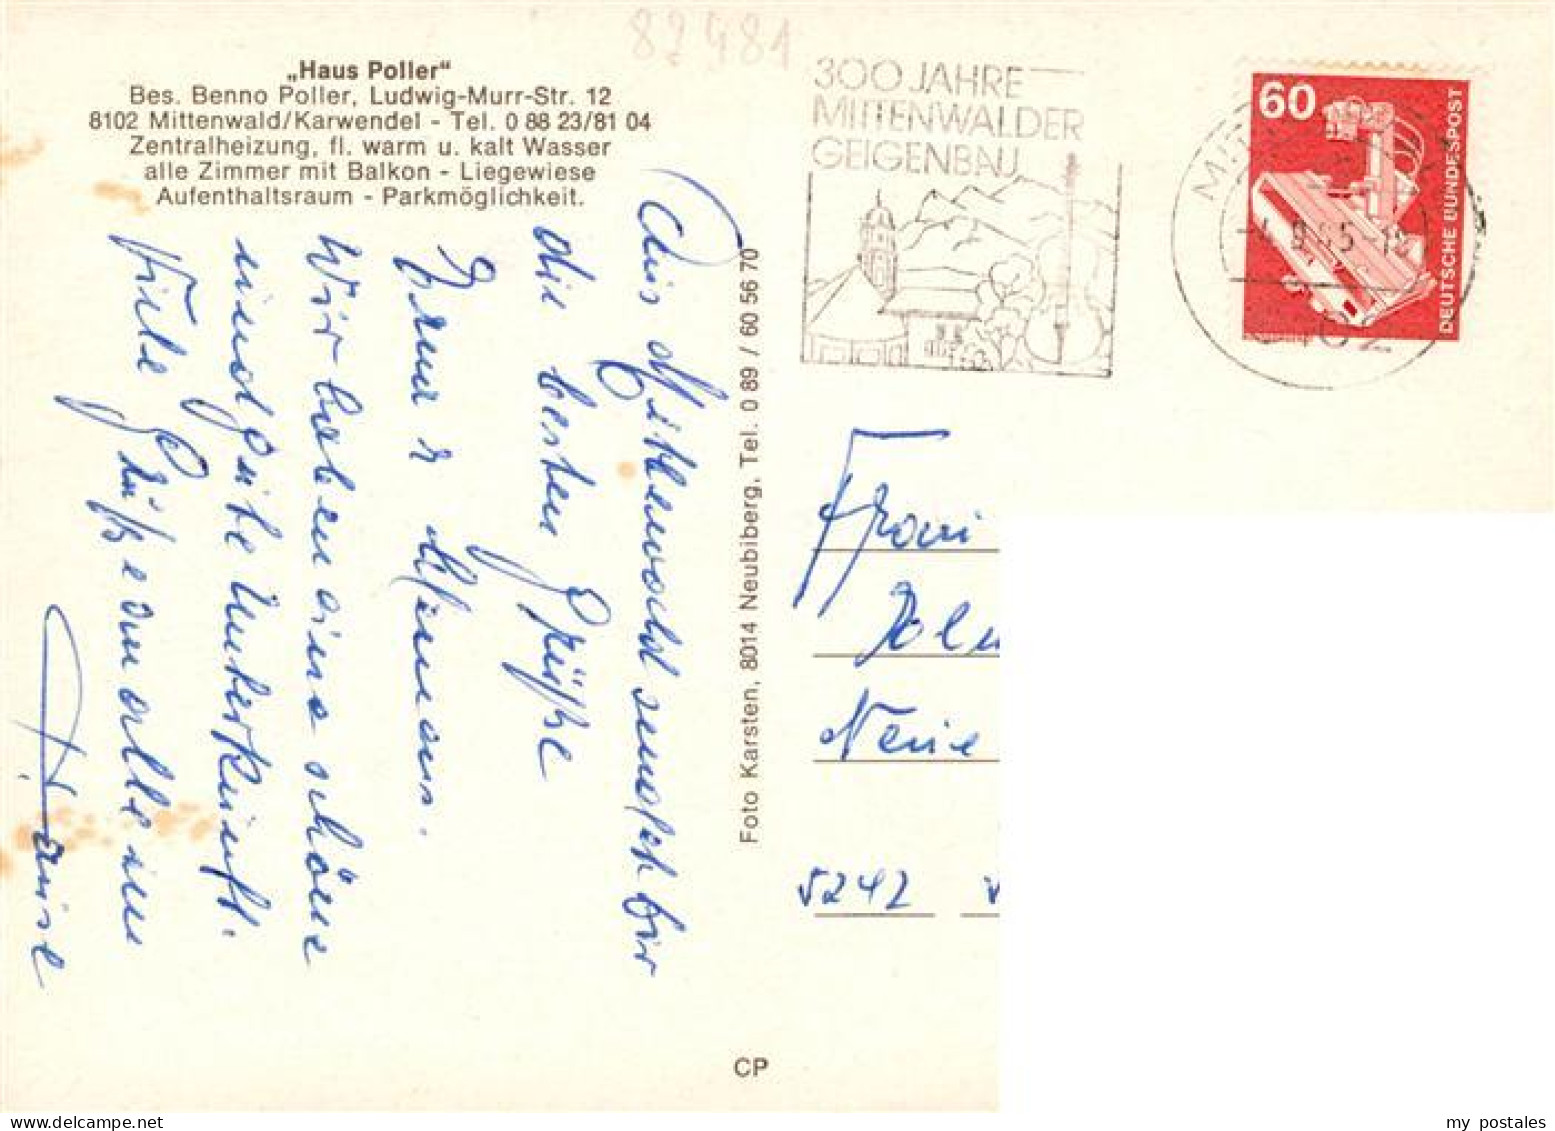 82481
„Haus Poller“
Bes. Benno Poller, Ludwig-Murr-Str. 12
8102 Mittenwald/Karwendel - Tel. 0 88 23/81 04
Zentralheizung, fl. warm u. kalt Wasser
alle Zimmer mit Balkon - Liegewiese
Aufenthaltsraum - Parkmöglichkeit.
300 JAHRE
MITTENWALDER
GEIGENBAU
60
DEUTSCHE BUNDESPOST
Aus Mittenwald senden wir
die besten Grüße
Erna &
Wir haben eine schöne
und gute Unterkunft.
Viele Grüße an alle
Foto Karsten, 8014 Neubiberg, Tel. 0 89 / 60 56 70
Frau
5242
CP
my postales